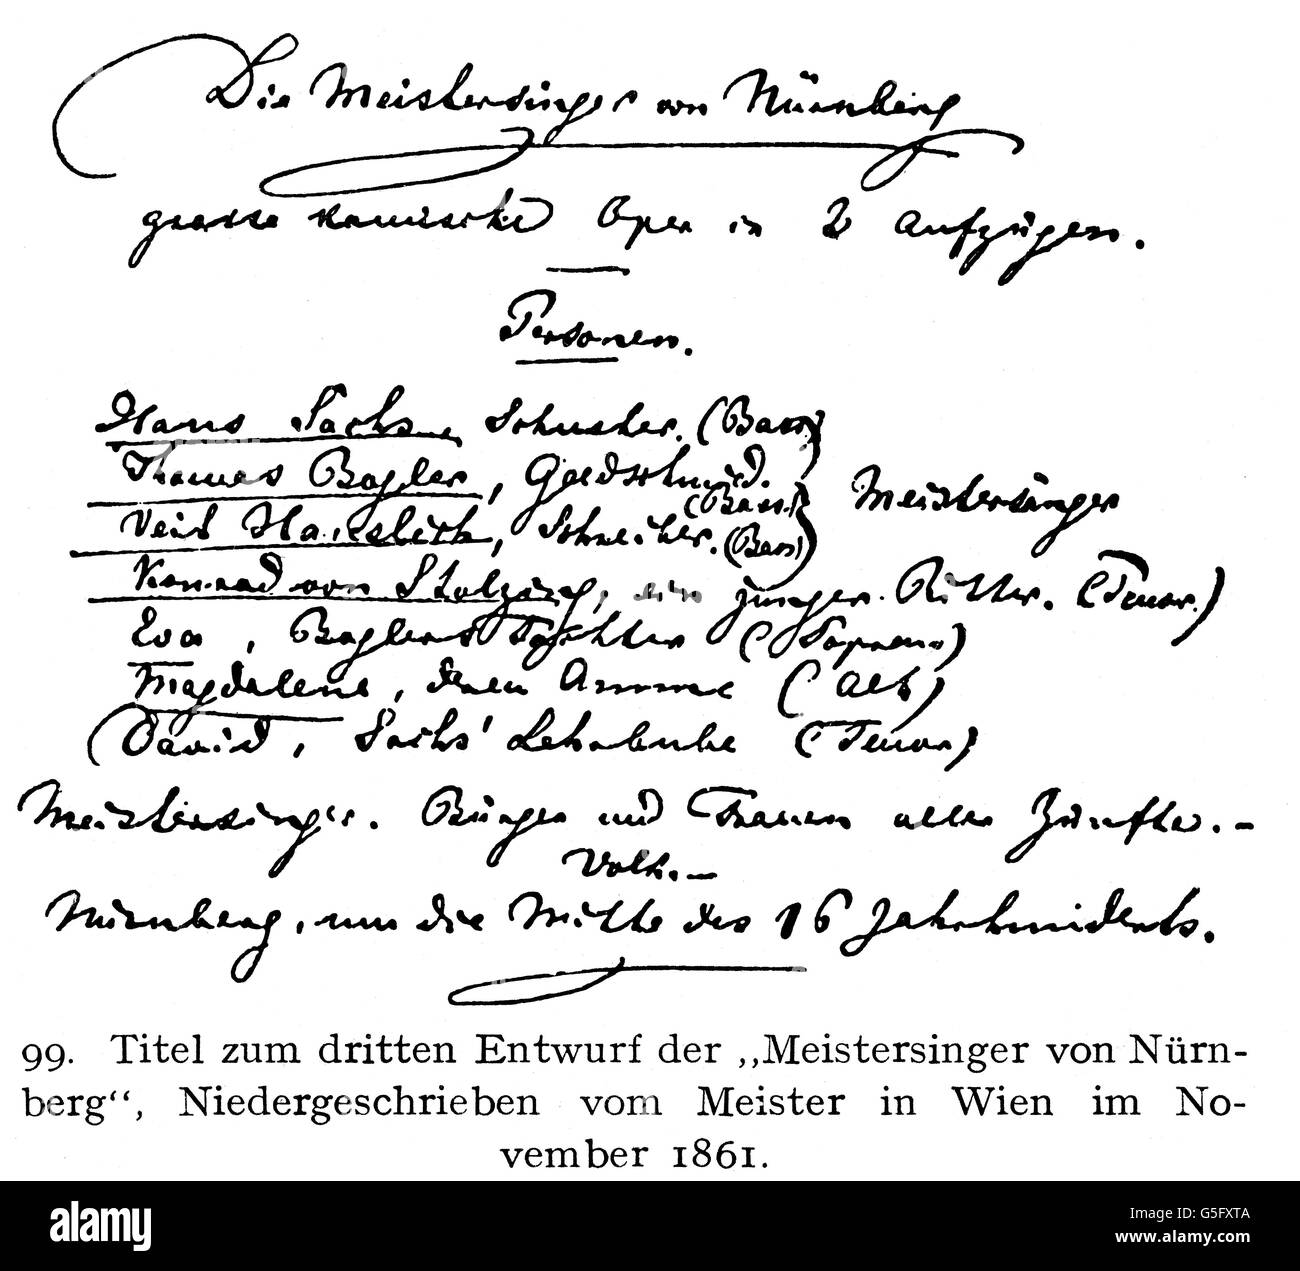 Die Meistersinger von Nürnberg
grosse komische Oper in 3 Aufzügen.
Personen.
Hans Sachs, Schuster. (Bass)
Thomas Bogler, Goldschmid.
(Bass) Meistersinger
Veit Hanslich, Schreiber. (Bass)
Konrad von Stolzing, ein junger Ritter. (Tenor.)
Eva, Boglers Tochter (Sopran)
Magdalene, deren Amme (Alt)
(David, Sachs' Lehrbube (Tenor)
Meistersinger. Bürger und Frauen aller Zünfte. –
Volk. –
Nürnberg, um die Mitte des 16 Jahrhunderts.
99. Titel zum dritten Entwurf der „Meistersinger von Nürn-
berg“, Niedergeschrieben vom Meister in Wien im No-
vember 1861.
alamy
G5FXTA
www.alamy.com